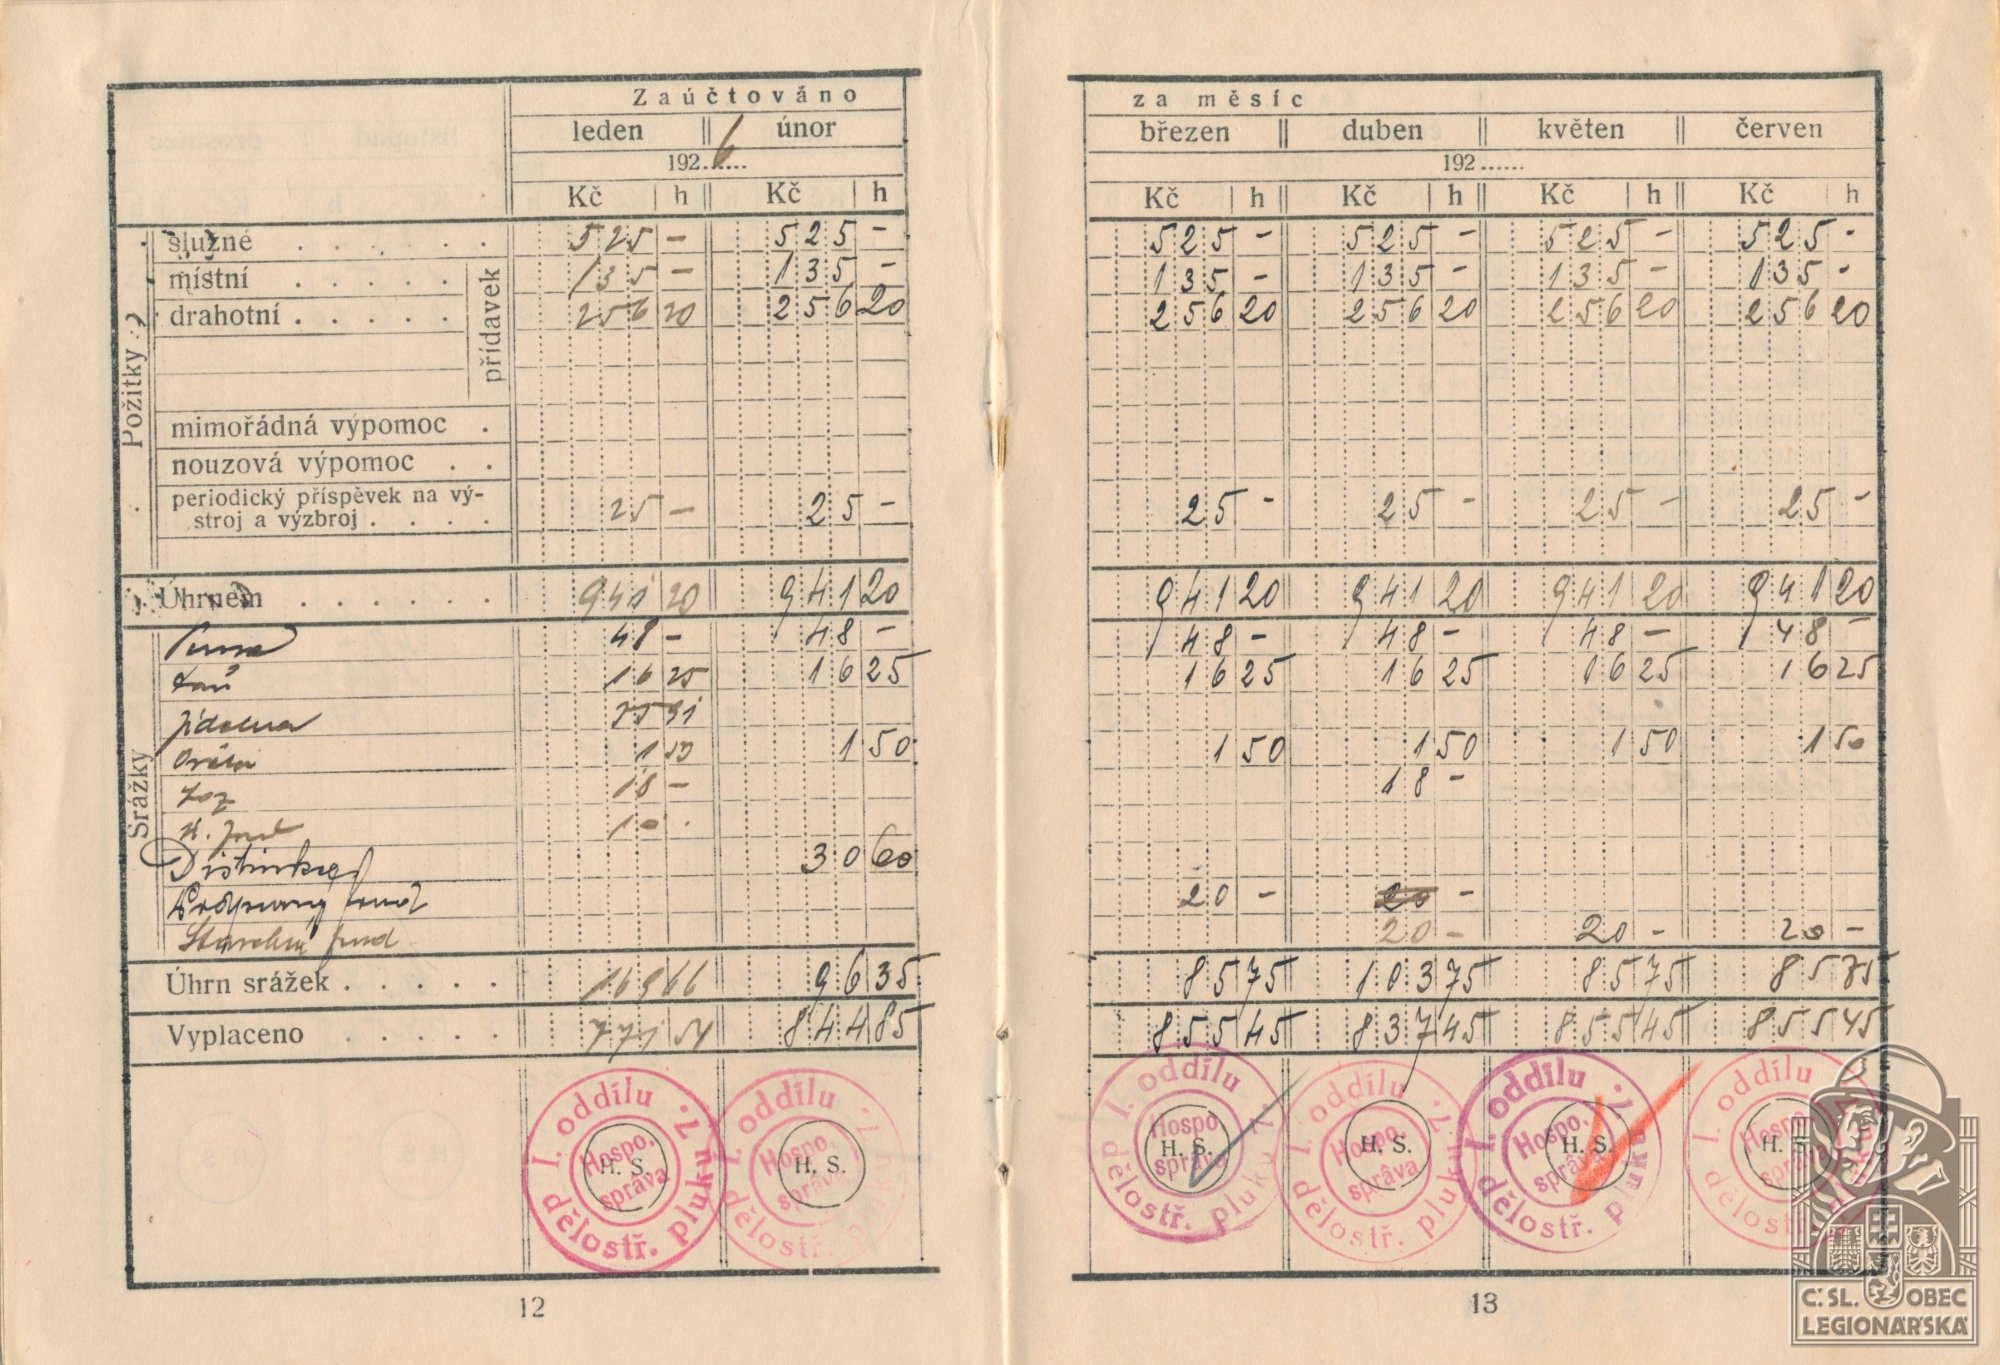 Zaúčtováno
leden únor
192 6
Kč h Kč h
Požitky
služné 525 - 525 -
místní 135 - 135 -
drahotní 256 20 256 20
přídavek
mimořádná výpomoc
nouzová výpomoc
periodický příspěvek na vý-
stroj a výzbroj 25 - 25 -
Úhrnem 941 20 941 20
Srážky
48 - 48 -
16 25 16 25
jídelna
1 50 1 50
18 -
Distinkce 30 60
fond
fond
Úhrn srážek 169 66 96 35
Vyplaceno 771 54 844 85
I. oddílu dělostř. pluku č. 7
Hospo. správa
H. S.
I. oddílu dělostř. pluku č. 7
Hospo. správa
H. S.
12
za měsíc
březen duben květen červen
192
Kč h Kč h Kč h Kč h
525 - 525 - 525 - 525 -
135 - 135 - 135 - 135 -
256 20 256 20 256 20 256 20
25 - 25 - 25 - 25 -
941 20 941 20 941 20 941 20
48 - 48 - 48 - 48 -
16 25 16 25 16 25 16 25
1 50 1 50 1 50 1 50
18 -
20 - 20 -
20 - 20 - 20 -
85 75 103 75 85 75 85 75
855 45 837 45 855 45 855 45
I. oddílu dělostř. pluku
Hospo. správa
H. S.
I. oddílu dělostř. pluku
Hospo. správa
H. S.
I. oddílu dělostř. pluku č. 7
Hospo. správa
H. S.
I. oddílu dělostř.
Hospo. správa
H. S.
13
Č. SL. OBEC
LEGIONÁŘSKÁ